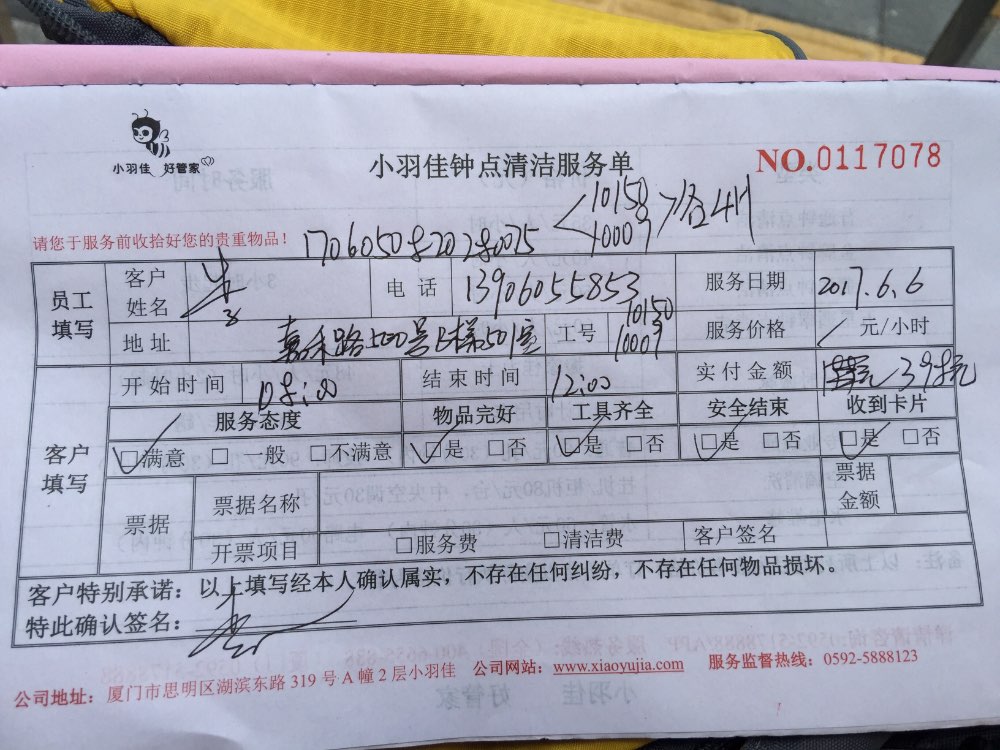 小羽佳 好管家
小羽佳钟点清洁服务单
NO.0117078
10158
10007
各4H
请您于服务前收拾好您的贵重物品!
员工填写
客户姓名
电话 13906055853
服务日期 2017.6.6
地址 嘉禾路500号 501室
工号 10150
10007
服务价格 元/小时
客户填写
开始时间
结束时间 12:00
实付金额
服务态度 物品完好 工具齐全 安全结束 收到卡片
□满意 □一般 □不满意 □是 □否 □是 □否 □是 □否 □是 □否
票据
票据名称
票据金额
开票项目 □服务费 □清洁费 客户签名
客户特别承诺:以上填写经本人确认属实,不存在任何纠纷,不存在任何物品损坏。
特此确认签名:
公司地址:厦门市思明区湖滨东路 319 号 A 幢 2 层小羽佳 公司网站:www.xiaoyujia.com 服务监督热线:0592-5888123